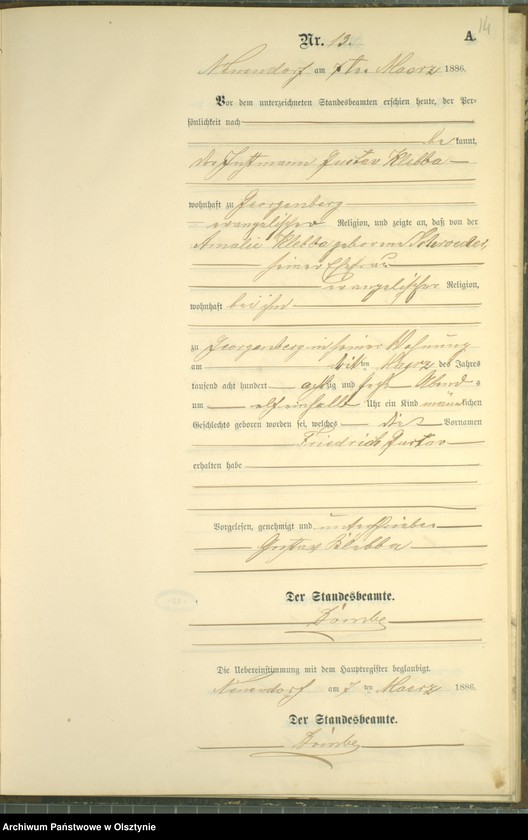 14
Nr. 13.
A.
Neuendorf am 7ten Maerz 1886.
Vor dem unterzeichneten Standesbeamten erschien heute, der Per-
sönlichkeit nach
be kannt,
der Gustav Klebba
wohnhaft zu Georgenberg
evangelischer Religion, und zeigte an, daß von der
Amalie Klebba geborenen Schroeder,
seiner Ehefrau
evangelischer Religion,
wohnhaft bei ihm
zu Georgenberg in seiner Wohnung
am dritten Maerz des Jahres
tausend acht hundert achtzig und sechs Abends
um elf einhalb Uhr ein Kind männlichen
Geschlechts geboren worden sei, welches die Vornamen
Friedrich Gustav
erhalten habe
Vorgelesen, genehmigt und unterschrieben
Gustav Klebba
Der Standesbeamte.
Die Uebereinstimmung mit dem Hauptregister beglaubigt.
Neuendorf am 7 ten Maerz 1886.
Der Standesbeamte.
Archiwum Państwowe w Olsztynie